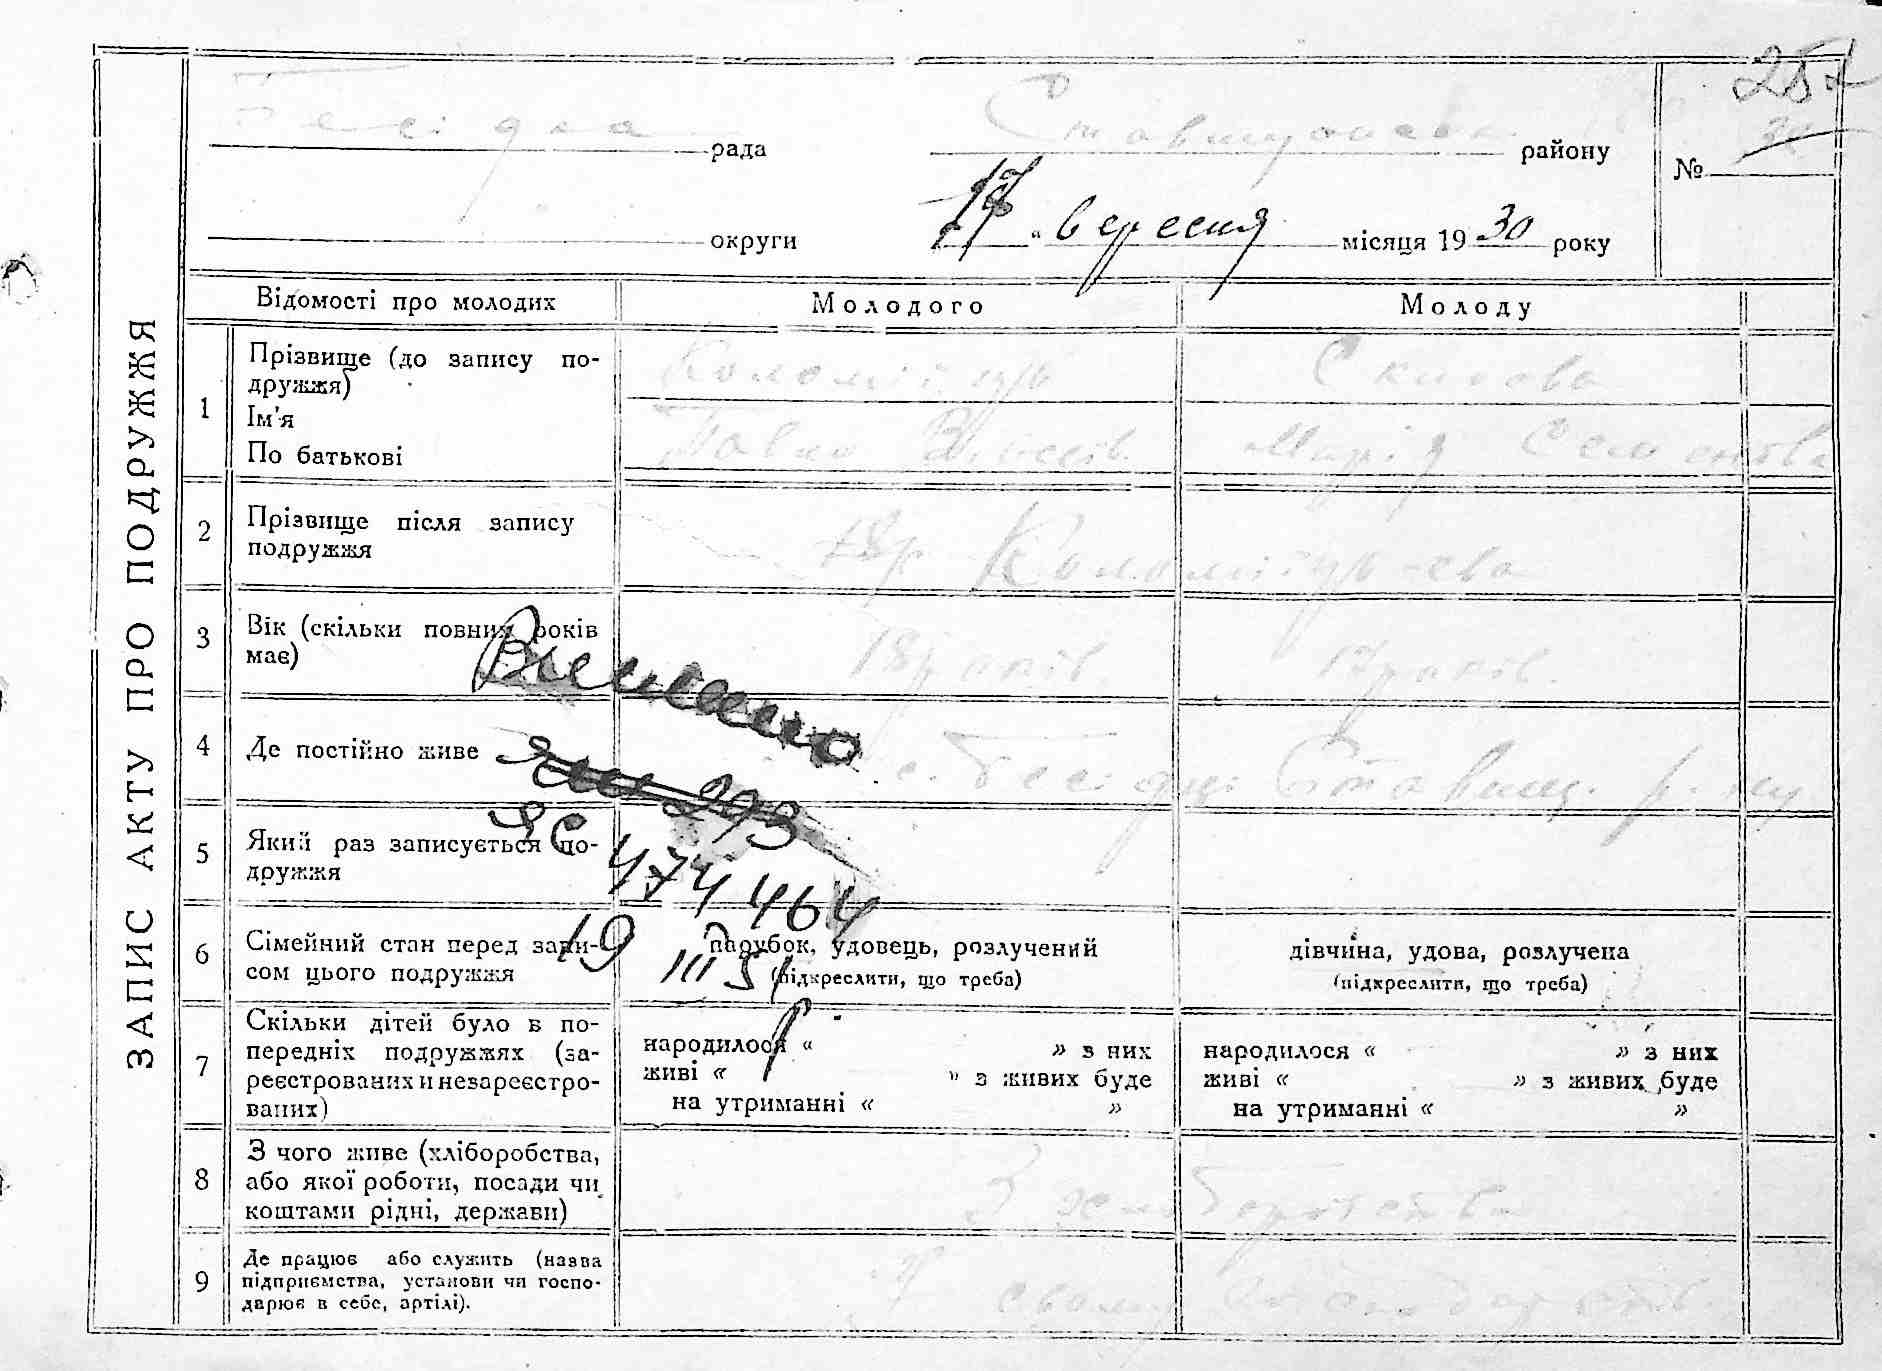 ЗАПИС АКТУ ПРО ПОДРУЖЖЯ
Бесідка рада
Ставищанськ району
№
округи
17 " вересня місяця 1930 року
Відомості про молодих
Молодого
Молоду
1
Прізвище (до запису по-
дружжя)
Ім'я
По батькові
Коломієць
Павло
Скипова
Марія Семенова
2
Прізвище після запису
подружжя
Коломієць-ева
3
Вік (скільки повних років
має)
18 років.
17 років.
4
Де постійно живе
с. Бесідці Ставищ. р-ну
5
Який раз записується по-
дружжя
6
Сімейний стан перед запи-
сом цього подружжя
парубок, удовець, розлучений
(підкреслити, що треба)
дівчина, удова, розлучена
(підкреслити, що треба)
7
Скільки дітей було в по-
передніх подружжях (за-
реєстрованих и незареєстро-
ваних)
народилося « » з них
живі « » з живих буде
на утриманні « »
народилося « » з них
живі « » з живих буде
на утриманні « »
8
З чого живе (хліборобства,
або якої роботи, посади чи
коштами рідні, держави)
З хліборобства
9
Де працює або служить (назва
підприємства, установи чи госпо-
дарює в себе, артілі).
У свому господарстві
Виписано
ЯС 474464
19 III 51 р